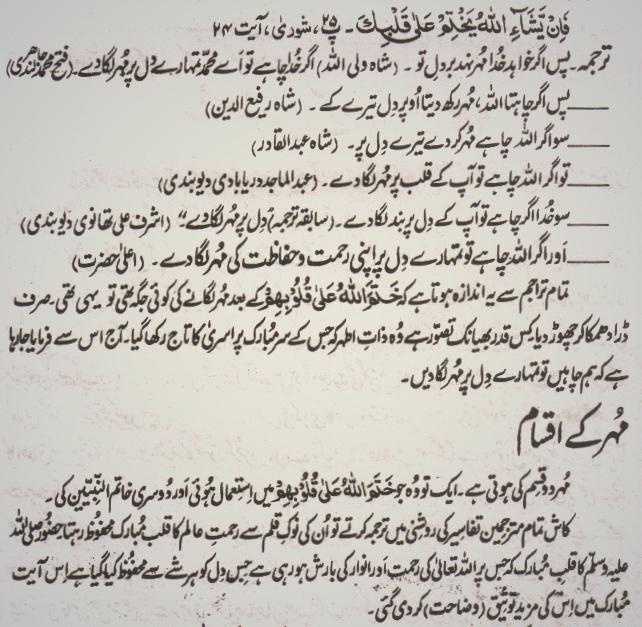 فَاِنْ یَّشَاءِ اللّٰہُ یَخْتِمْ عَلٰی قَلْبِکَ۔ پ ۲۵، شوریٰ، آیت ۲۴
ترجمہ۔ پس اگر خواہد خدا مُہر نہد بر دل تو۔ (شاہ ولی اللہ) اگر خُدا چاہے تو اَے محمّد تمہارے دِل پر مُہر لگا دے۔ (فتح محمد جالندھری)
——پس اگر چاہتا اللہ، مُہر رکھ دیتا اُوپر دِل تیرے کے۔ (شاہ رفیع الدین)
——سو اگر اللہ چاہے مُہر کر دے تیرے دِل پر۔ (شاہ عبدالقادر)
——تو اگر اللہ چاہے تو آپ کے قلب پر مُہر لگا دے۔ (عبدالماجد دریابادی دیوبندی)
——سو خُدا اگر چاہے تو آپ کے دِل پر بند لگا دے۔ (سابقہ ترجمہ) "دِل پر مُہر لگا دے" (اشرف علی تھانوی دیوبندی)
——اَور اگر اللہ چاہے تو تمہارے دِل پر اپنی رحمت و حفاظت کی مُہر لگا دے۔ (اعلیٰ حضرت)
تمام تراجم سے یہ اندازہ ہوتا ہے کہ خَتَمَ اللّٰہُ عَلٰی قُلُوْبِھِمْ کے بعد مُہر لگانے کی کوئی جگہ تھی تو یہی تھی۔ صرف
ڈرا دھمکا کر چھوڑ دیا۔ کس قدر بھیانک تصوّر ہے وُہ ذاتِ اطہر کہ جس کے سرِ مُبارک پر اسریٰ کا تاج رکھا گیا۔ آج اس سے فرمایا جا رہا
ہے کہ ہم چاہیں تو تمہارے دِل پر مُہر لگا دیں۔
مُہر کے اقسام
مُہر دو قسم کی ہوتی ہے۔ ایک تو وُہ جو خَتَمَ اللّٰہُ عَلٰی قُلُوْبِھِمْ میں اِستعمال ہُوئی اَور دُوسری خاتم النّبیّین کی۔
کاش تمام مترجمین تفاسیر کی روشنی میں ترجمہ کرتے تو اُن کی نوکِ قلم سے رحمت عالم کا قلب مُبارک محفوظ رہتا۔ حضور صلی اللہ
علیہ وسلّم کا قلب مُبارک کہ جس پر اللہ تعالیٰ کی رحمت اَور انوار کی بارش ہو رہی ہے جِس دِل کو ہر شے سے محفوظ کیا گیا ہے اِس آیت
مُبارک میں اِس کی مزید توثیق (وضاحت) کر دی گئی۔